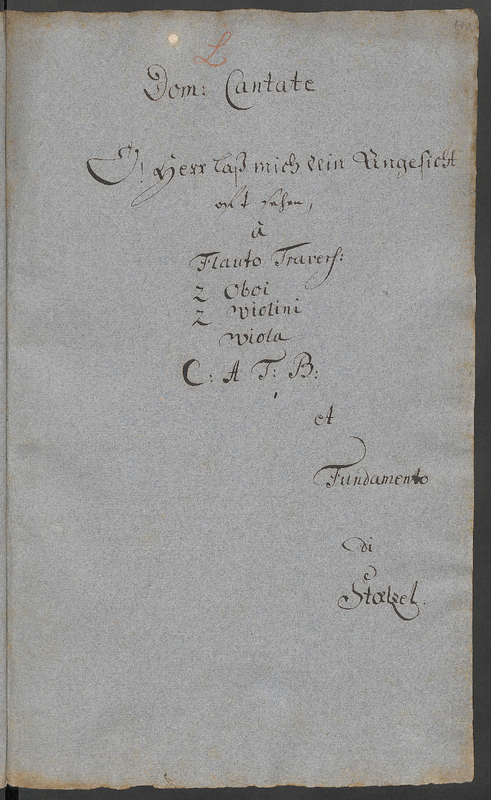 L
Dom: Cantate
O! Herr laß mich dein Angesicht
oft sehen,
à
Flauto Travers:
2 Oboi
2 Wiolini
Wiola
C: A T: B:
et
Fundamento
di
Stœlzel.